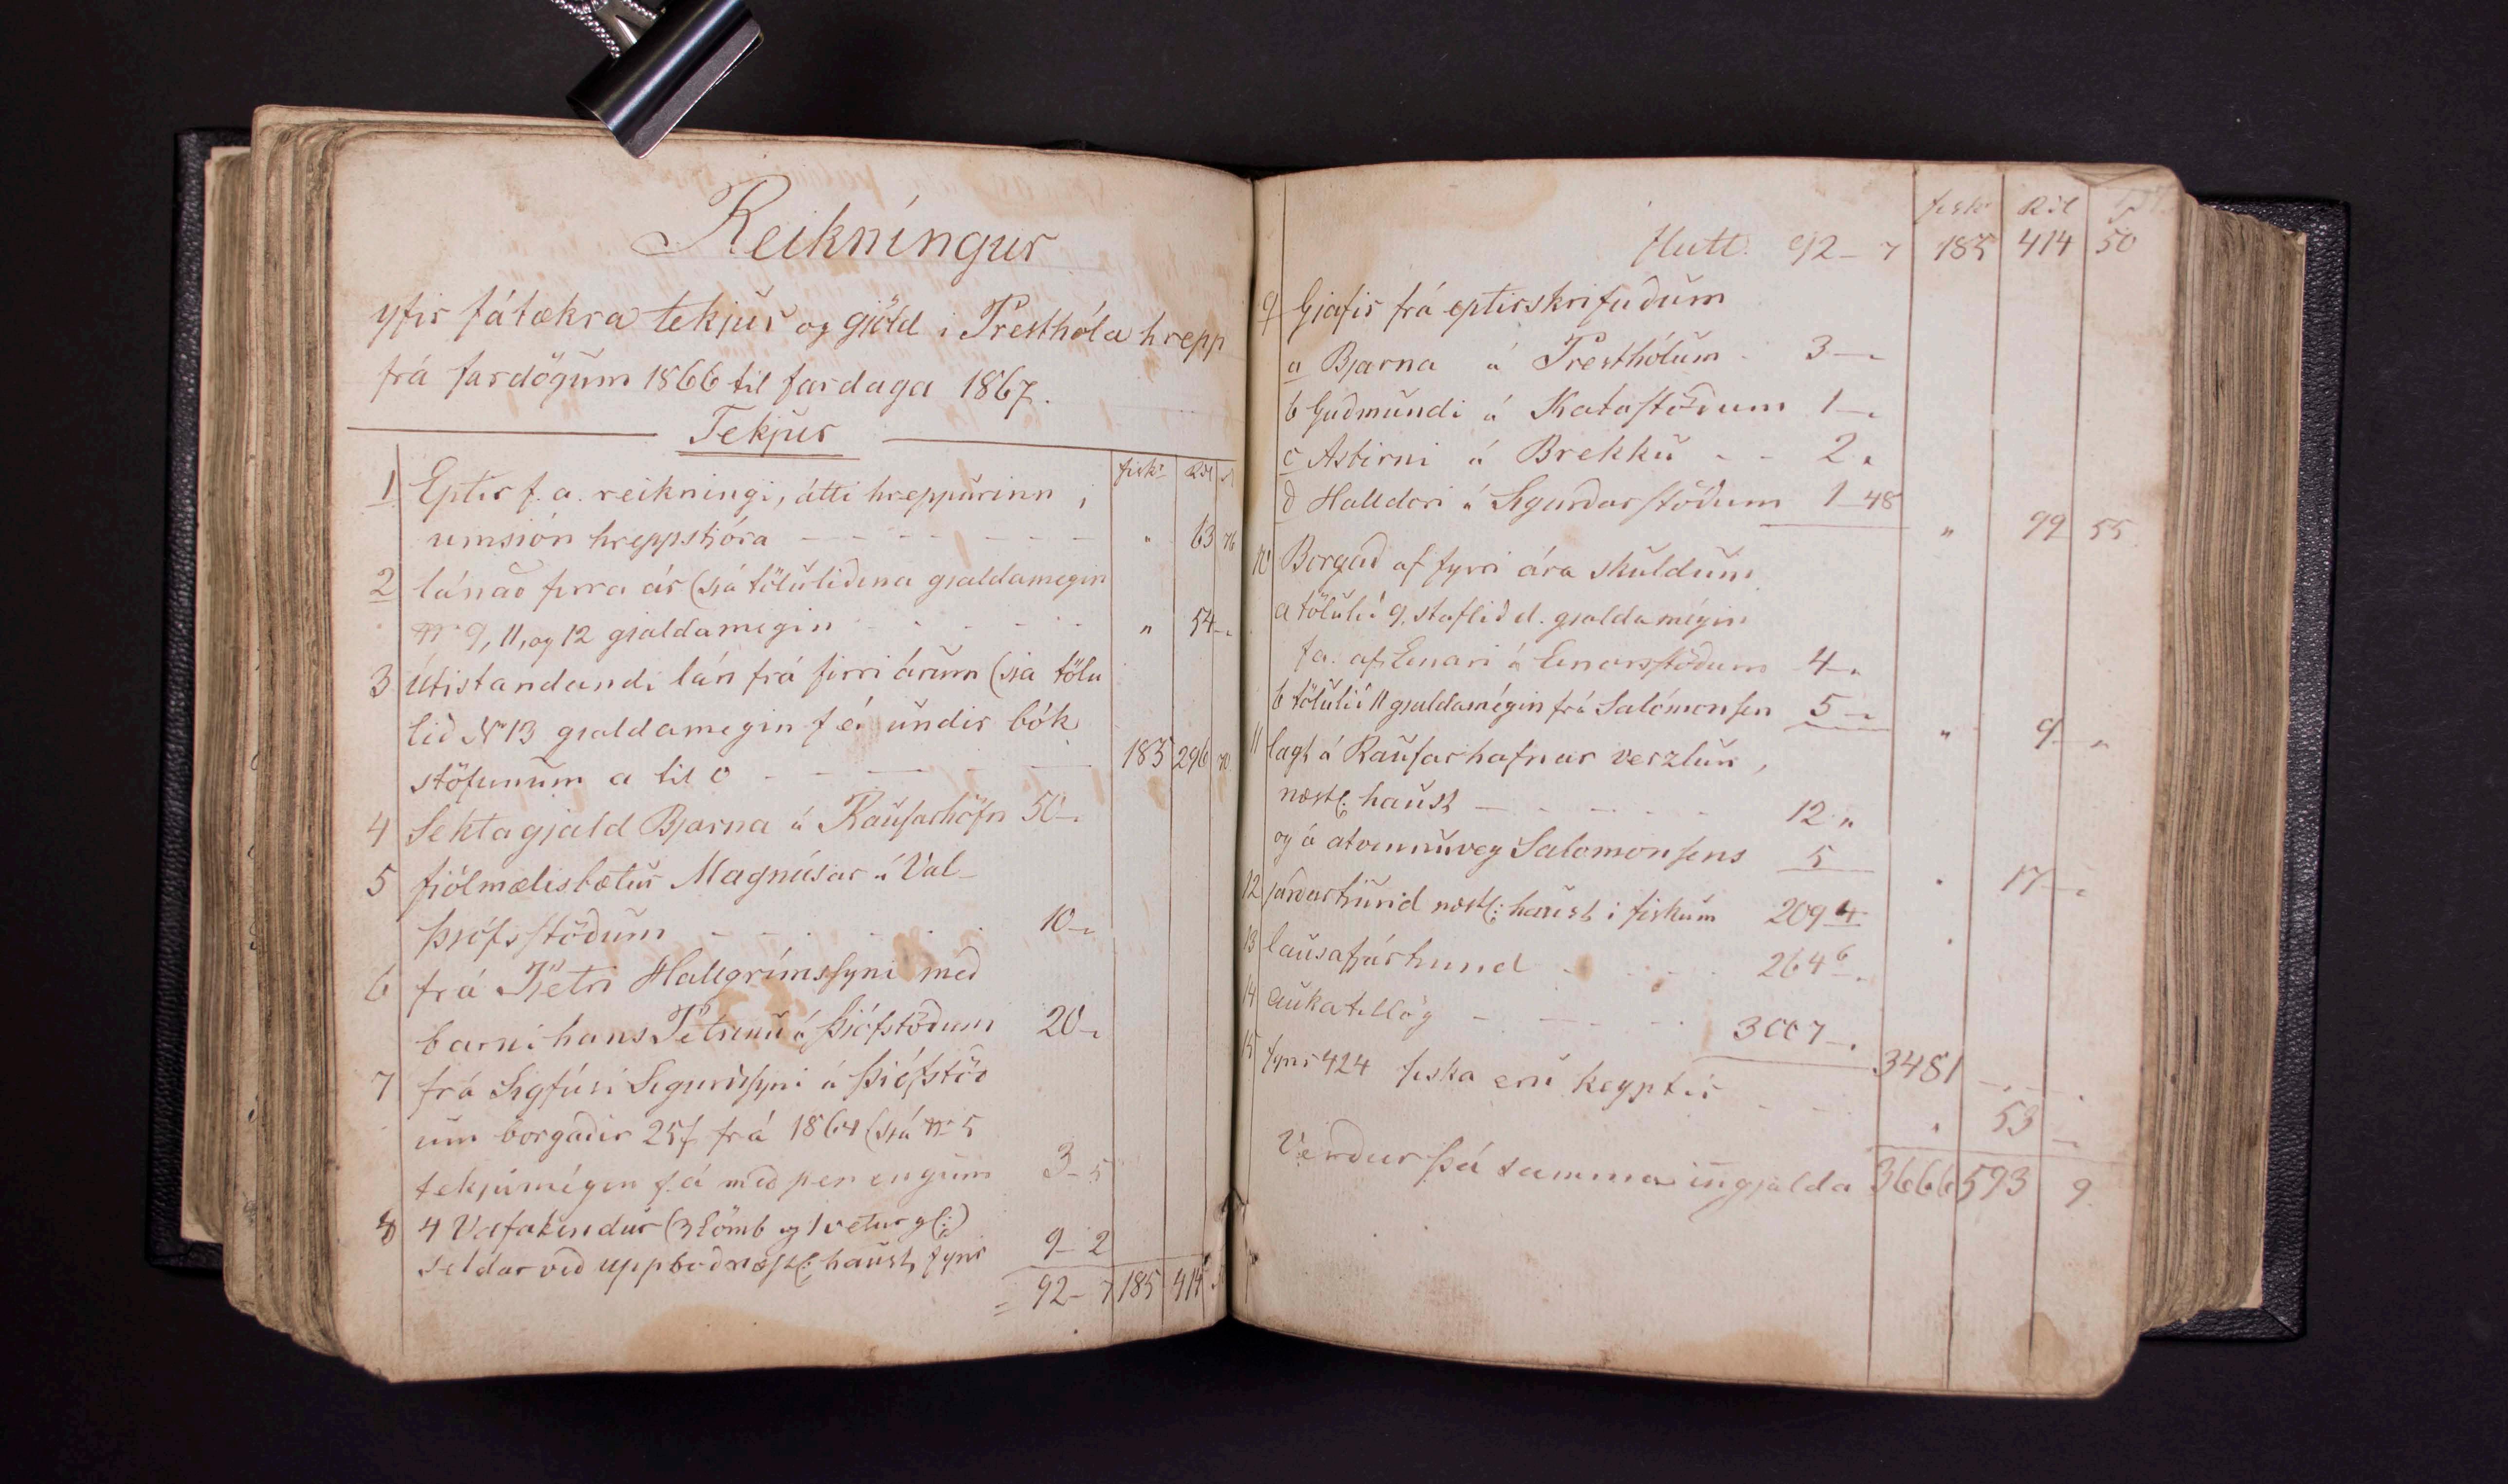 Reikníngur
yfir fátækra tekjur og gjöld i Presthóla hrepp
frá fardögum 1866 til fardaga 1867.
Tekjur
fisk: Rdl
1 Eptir f. a. reikningi, átti hreppurinn i
umsión hreppstjóra - - - - - - „ 63 76
2 lánað firra ár (sjá töluliðina gjaldamegin
Nr 9, 11, og 12 gjaldamegin - - - - - „ 54 - „
3 Útistandandi lán frá firri árum (sja tölu
lið Nr 13 gjaldamegin f á undir bók
stöfunum a til o - - - - - 185 296 70
4 Sektagjald Bjarna á Raufarhöfn 50 - „
5 fjölmælisbætur Magnúsar á Val-
þjófsstöðum - - - - - 10 - „
6 frá Pjetri Hallgrímssyni með
barni hans Petrinu á Þjófstöðum 20 - „
7 frá Sigfúsi Sigurðssyni á Þjófstöð
um borgaðir 25f frá 1864 (sjá Nr 5
tekjumégin f. á með peningum 3 - 5
8 4 Vafakindur (3 lömb og 1 veturg(:)
seldar við uppboð næstl: haust, fyrir 9 - 2
= 92 - 7 185 414
fisk Rdl
flutt. 92 - 7 185 414 50
9 Gjafir frá eptirskrifuðum
a Bjarna á Presthólum - 3 - „
b Guðmundi á Katastöðum 1 - „
c Asbirni á Brekku - - 2 „
d Halldóri á Sigurðarstöðum 1 - 48 „ 99 55
10 Borgað af fyrri ára skuldum
a tölulið 9, staflið d. gjaldamégin
f a. af Einari á Einarsstöðum 4 - „
b tölulið 11 gjaldamégin frá Salómonsen 5 - „ „ 9 - „
11 lagt á Raufarhafnar verzlun,
næstl: haust - - - - - 12 „
og á atvinnuveg Salomonsens 5 „ 17 - „
12 jarðartiund næstl: haust i fiskum 209 4
13 lausafjártiund - - - - 264 6 - „
14 aukatillög - - - - 3007 - „ 3481 - „ -
15 fyrir 424 fiska eru keyptir - - - „ 53 - „
Verður þá summa inngjalda 3666 593 9